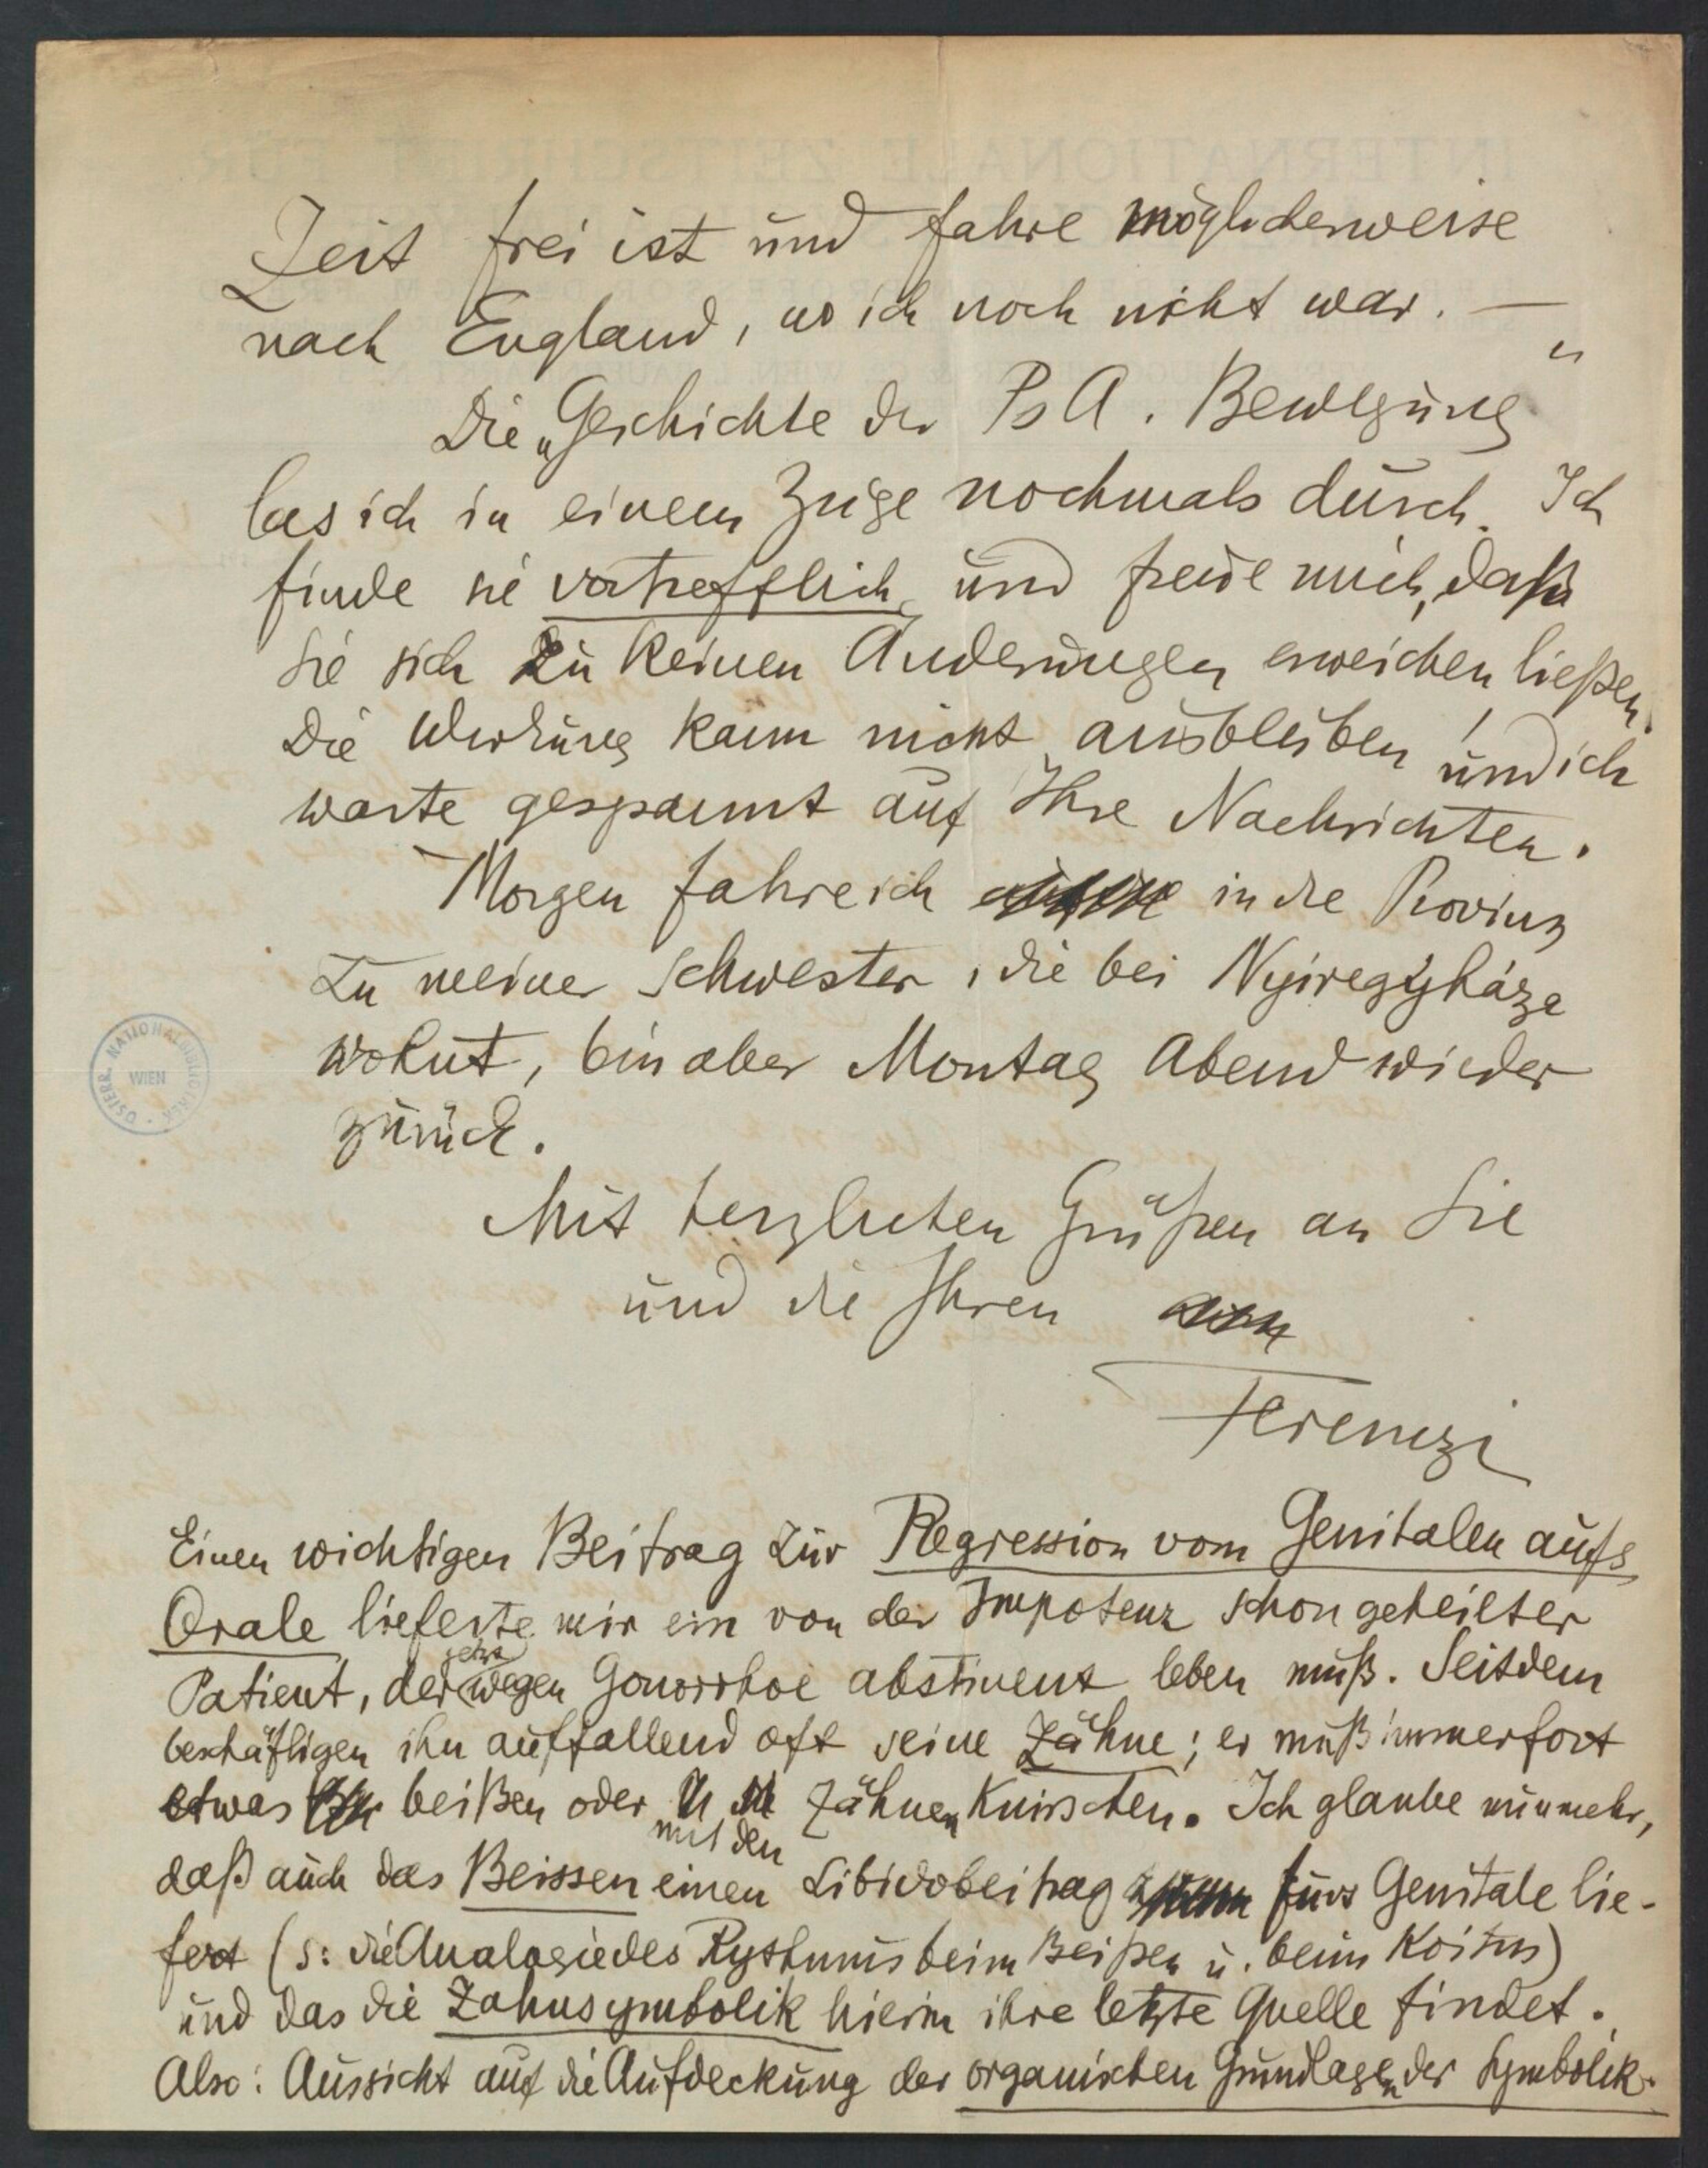 Zeit frei ist und fahre möglicherweise
nach England, wo ich noch nicht war. —
Die „Geschichte der PsA. Bewegung“
las ich in einem Zuge nochmals durch. Ich
finde sie vortrefflich und freue mich, daß
Sie sich zu keinen Änderungen erweichen ließen.
Die Wirkung kann nicht ausbleiben und ich
warte gespannt auf Ihre Nachrichten.
Morgen fahre ich in die Provinz
zu meiner Schwester, die bei Nyiregyháza
wohnt, bin aber Montag Abend wieder
zurück.
Mit herzlichen Grüßen an Sie
und die Ihren
Ferenczi
Einen wichtigen Beitrag zur Regression vom Genitalen aufs
Orale lieferte mir ein von der Impotenz schon geheilter
Patient, der jetzt wegen Gonorrhoe abstinent leben muß. Seitdem
beschäftigen ihn auffallend oft seine Zähne; er muß immerfort
etwas beißen oder mit den Zähnen knirschen. Ich glaube nunmehr,
daß auch das Beissen einen Libidobeitrag fürs Genitale lie-
fert (s: die Analogie des Rythmus beim Beißen u. beim Koitus)
und das die Zahnsymbolik hierin ihre letzte Quelle findet.
Also: Aussicht auf die Aufdeckung der organischen Grundlagen der Symbolik.
ÖSTERR. NATIONALBIBLIOTHEK
WIEN